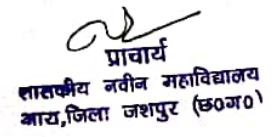 प्राचार्य
शासकीय नवीन महाविद्यालय
आरा,जिला जशपुर (छ०ग०)